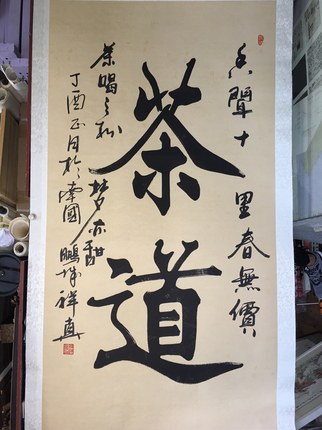 香聞十里春無價
茶道
茶喝三杯夢亦甜
丁酉正月於南國鵬城祥真